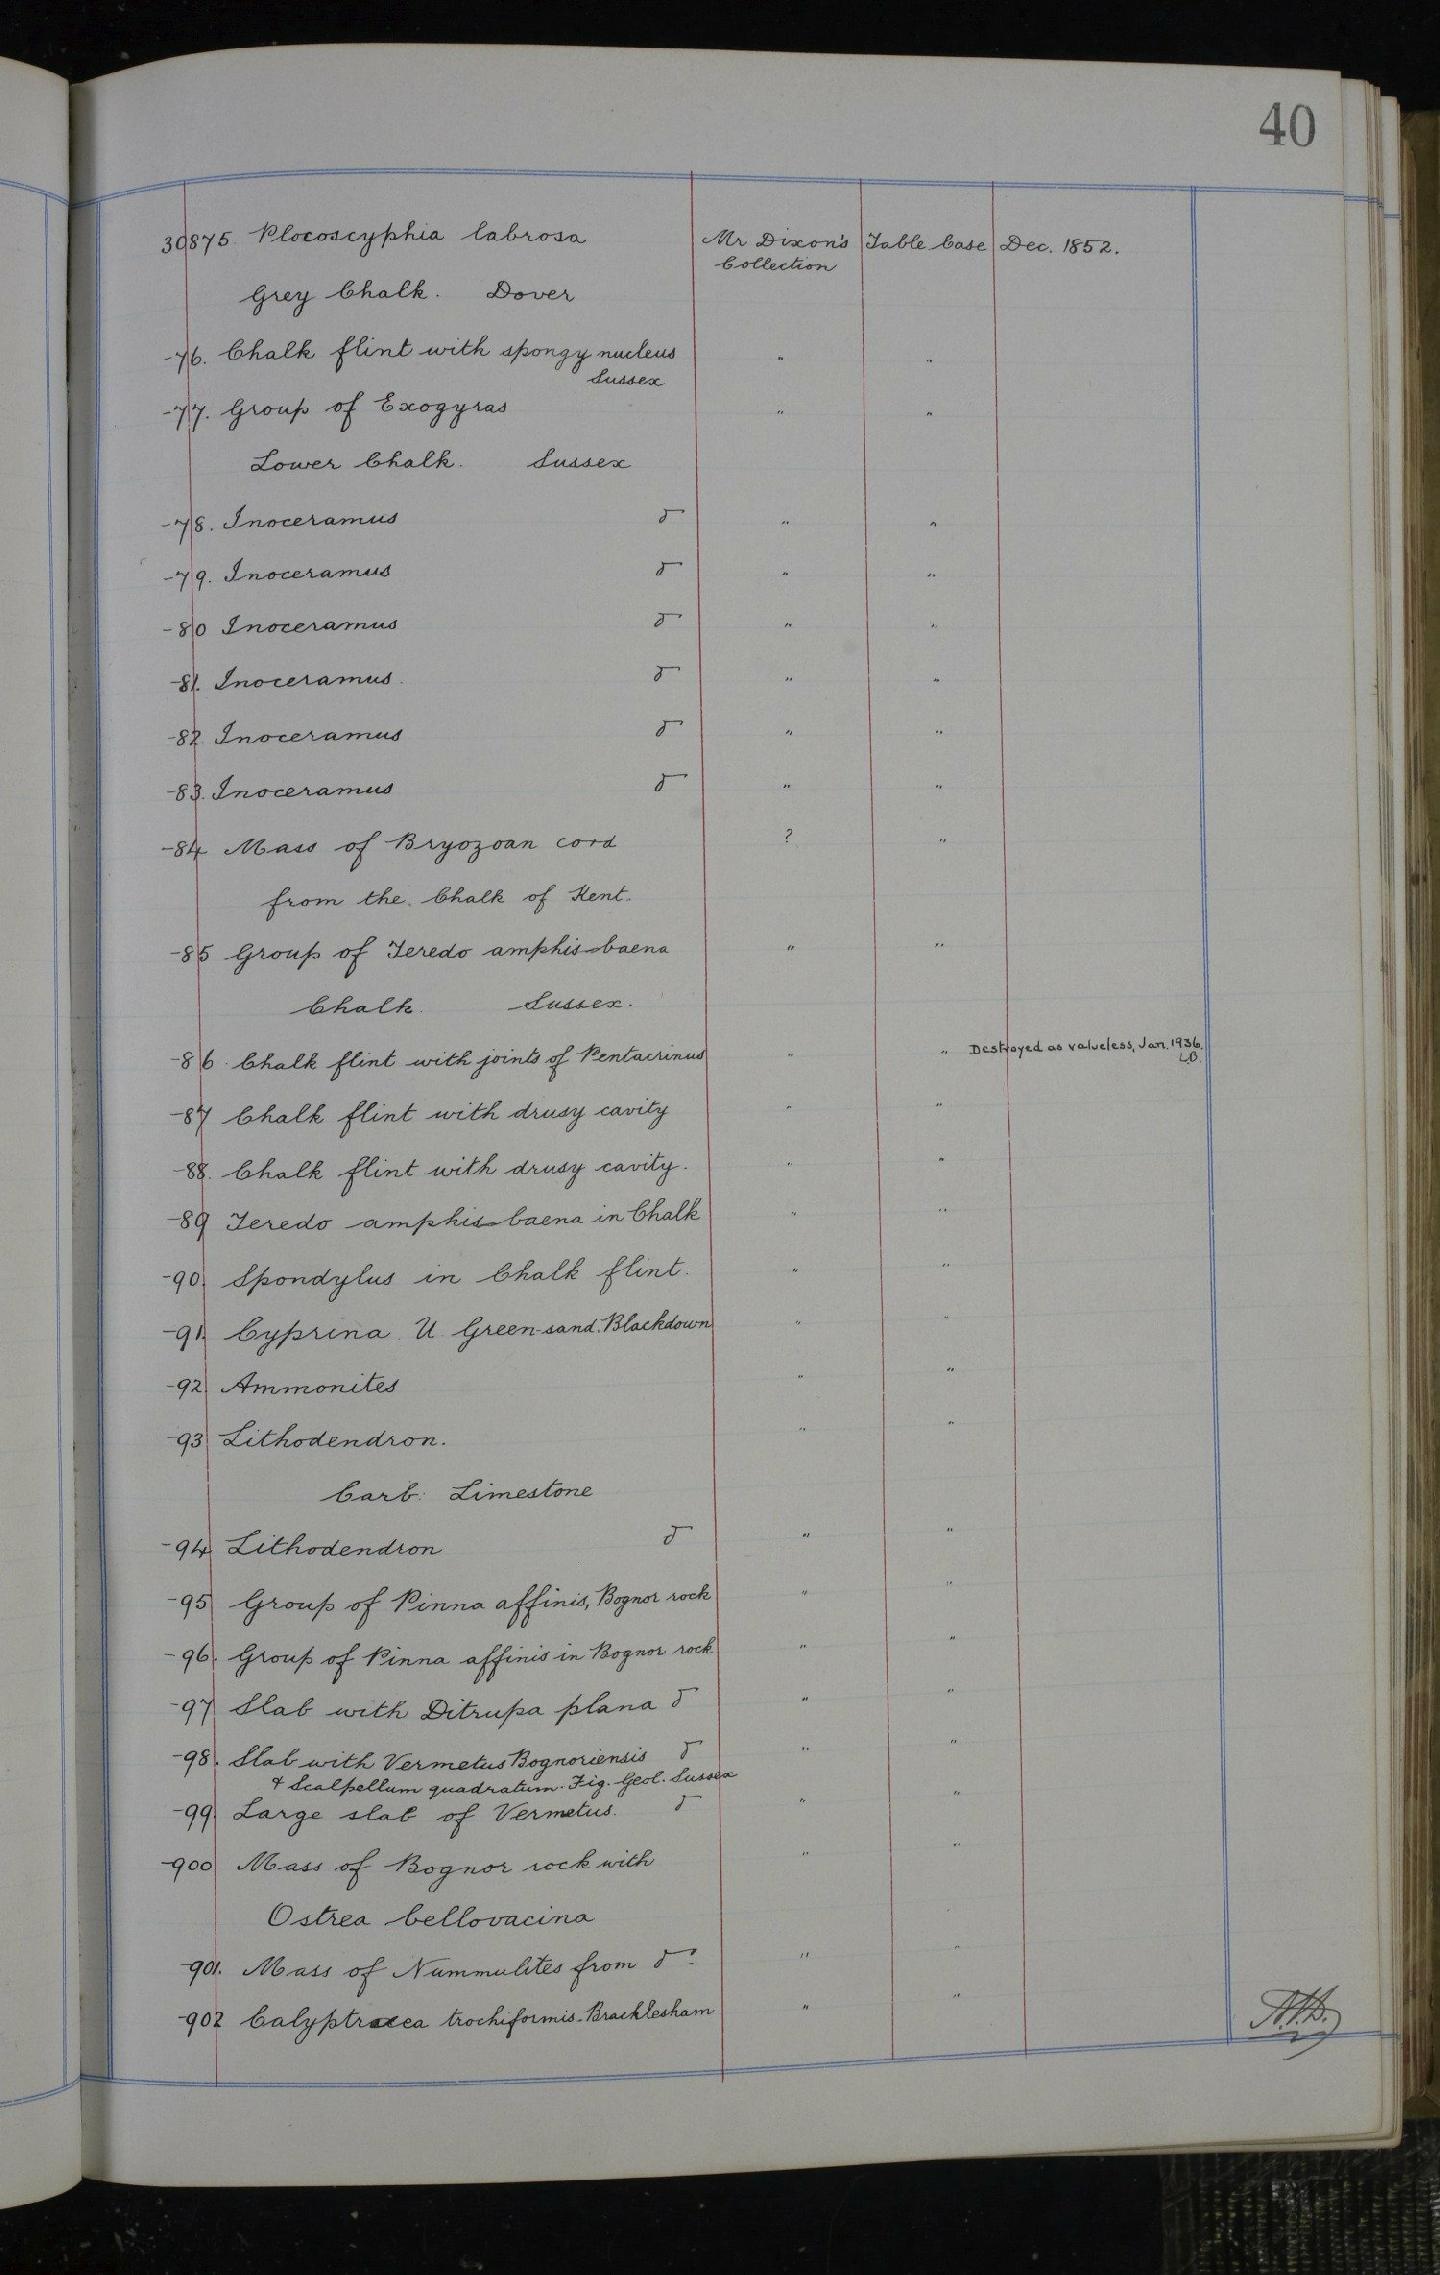 40
30875. Plocoscyphia labrosa Mr Dixon's Table Case Dec. 1852.
Collection
Grey Chalk. Dover
-76. Chalk flint with spongy nucleus " "
Sussex
-77. Group of Exogyras " "
Lower Chalk. Sussex
-78. Inoceramus do " "
-79. Inoceramus do " "
-80 Inoceramus do " "
-81. Inoceramus. do " "
-82 Inoceramus do " "
-83. Inoceramus do " "
-84 Mass of Bryozoan cord ? "
from the Chalk of Kent.
-85 Group of Teredo amphisbaena " "
Chalk. Sussex.
-86. Chalk flint with joints of Pentacrinus " " Destroyed as valueless, Jan. 1936.
-87 Chalk flint with drusy cavity " "
-88. Chalk flint with drusy cavity. " "
-89 Teredo amphisbaena in Chalk " "
-90. Spondylus in Chalk flint. " "
-91. Cyprina U. Green-sand. Blackdown " "
-92. Ammonites " "
-93 Lithodendron. " "
Carb: Limestone
-94 Lithodendron do " "
-95 Group of Pinna affinis, Bognor rock " "
-96. Group of Pinna affinis in Bognor rock " "
-97 Slab with Ditrupa plana do " "
-98. Slab with Vermetus Bognoriensis do " "
& Scalpellum quadratum. Fig. Geol. Sussex
-99. Large slab of Vermetus. do " "
-900 Mass of Bognor rock with " "
Ostrea bellovacina
-901. Mass of Nummulites from do. " "
-902 Calyptraea trochiformis. Bracklesham " "